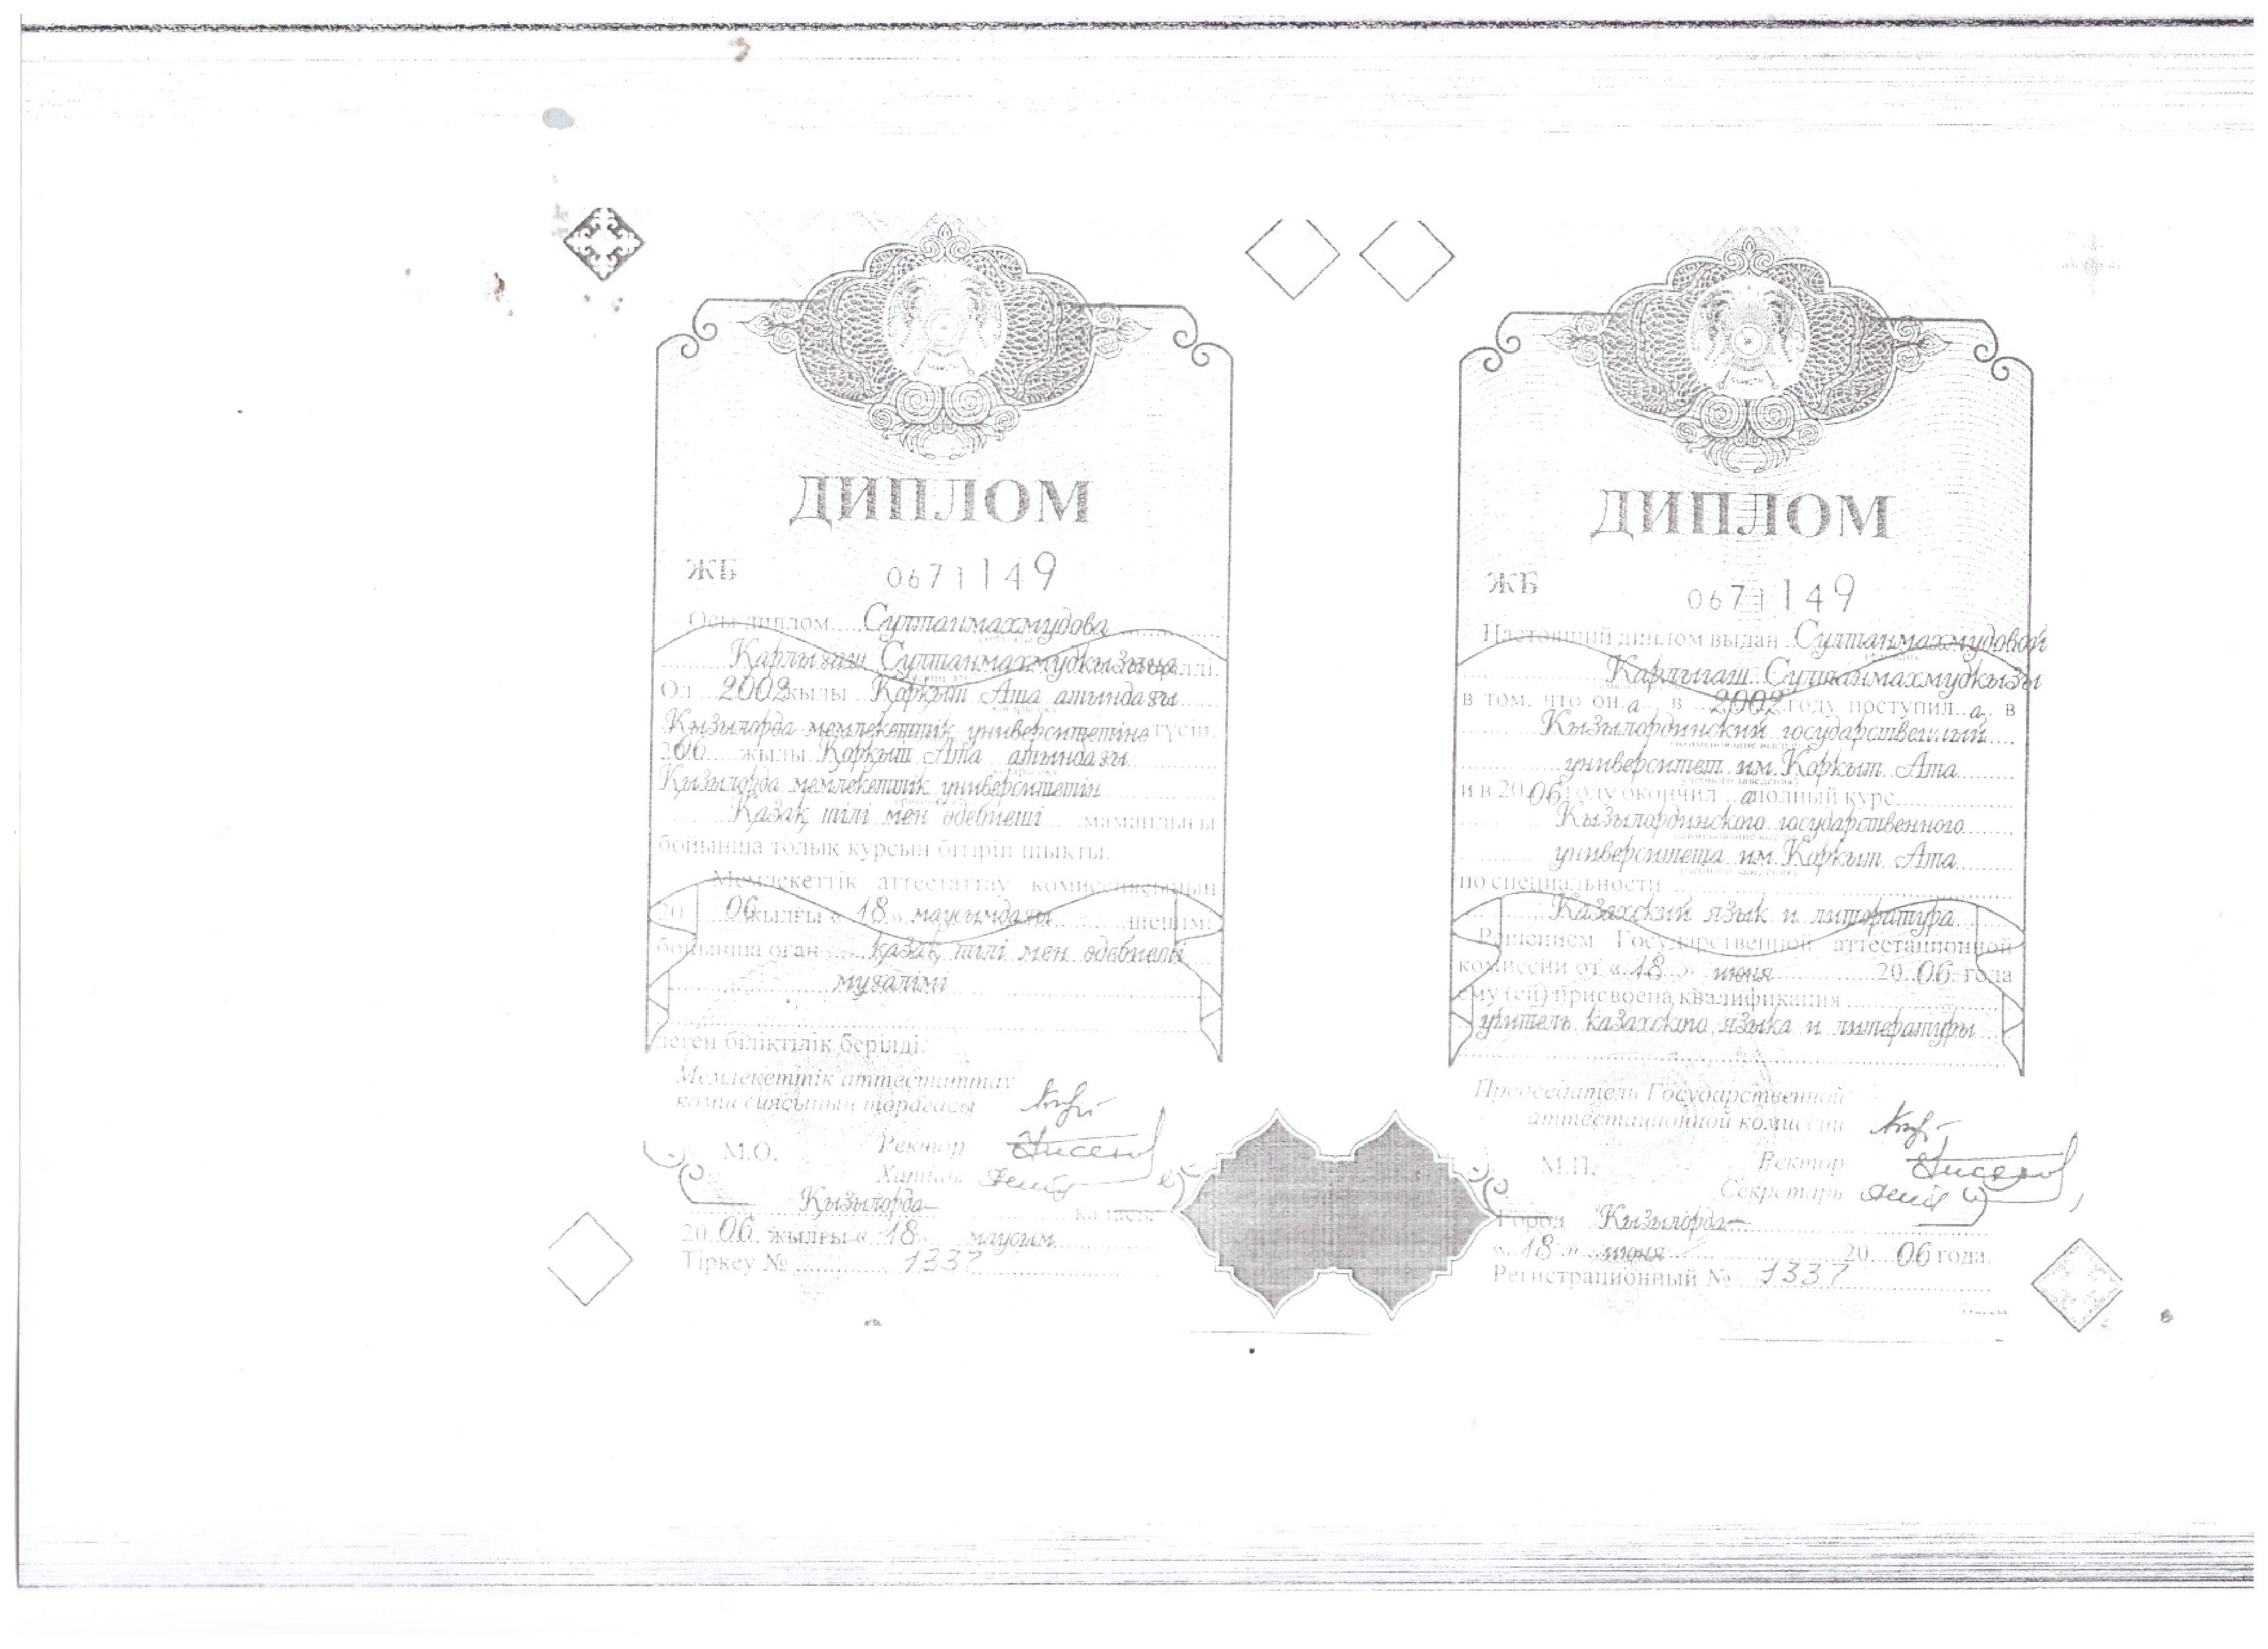 ДИПЛОМ
ЖБ 0671149
Осы диплом Султанмахмудова
Карлығаш Султанмахмудкызына берілді.
Ол 2002 жылы Қорқыт Ата атындағы
Қызылорда мемлекеттік университетіне түсіп,
2006 жылы Қорқыт Ата атындағы
Қызылорда мемлекеттік университетін
Қазақ тілі мен әдебиеті мамандығы
бойынша толық курсын бітіріп шықты.
Мемлекеттік аттестаттау комиссиясының
20 06 жылғы « 18 » маусымдағы шешімі
бойынша оған қазақ тілі мен әдебиеті
мұғалімі
деген біліктілік берілді.
Мемлекеттік аттестаттау
комиссиясының төрағасы
М.О. Ректор
Хатшы
Қызылорда қаласы
20 06 жылғы « 18 » маусым
Тіркеу № 1337
ДИПЛОМ
ЖБ 0671149
Настоящий диплом выдан Султанмахмудовой
Карлыгаш Султанмахмудкызы
в том, что он а в 2002 году поступил а в
Кызылординский государственный
университет им. Коркыт Ата
и в 20 06 году окончил а полный курс
Кызылординского государственного
университета им. Коркыт Ата
по специальности
Казахский язык и литература
Решением Государственной аттестационной
комиссии от « 18 » июня 20 06 года
ему (ей) присвоена квалификация
учитель казахского языка и литературы
Председатель Государственной
аттестационной комиссии
М.П. Ректор
Секретарь
Город Кызылорда
« 18 » июня 20 06 года.
Регистрационный № 1337